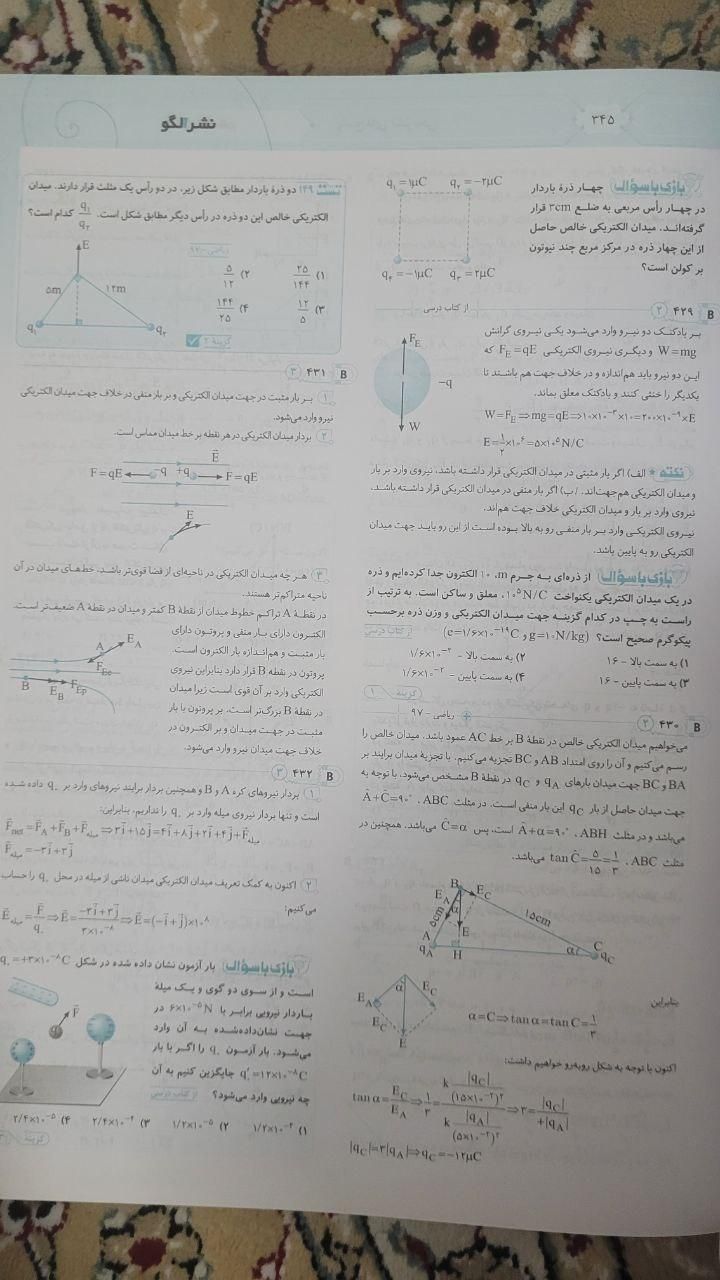 ۳۴۵
نشر الگو
بازی با سؤال چهار ذرهٔ باردار
در چهار رأس مربعی به ضلع ۳cm قرار
گرفته‌اند. میدان الکتریکی خالص حاصل
از این چهار ذره در مرکز مربع چند نیوتون
بر کولن است؟
q₁ = ۱μC q₂ = −۲μC
q₄ = −۱μC q₃ = ۲μC
B ۴۲۹ ۲
از کتاب درسی
بر بادکنک دو نیرو وارد می‌شود یکی نیروی گرانش
W = mg و دیگری نیروی الکتریکی F_E = qE که
این دو نیرو باید هم‌اندازه و در خلاف جهت هم باشند تا
یکدیگر را خنثی کنند و بادکنک معلق بماند.
W = F_E ⇒ mg = qE ⇒ ۱۰×۱۰⁻³×۱۰ = ۲۰۰×۱۰⁻⁹×E
E = ۱/۲ ×۱۰⁶ = ۵×۱۰⁵ N/C
F_E
−q
W
نکته * الف) اگر بار مثبتی در میدان الکتریکی قرار داشته باشد، نیروی وارد بر بار
و میدان الکتریکی هم‌جهت‌اند. / ب) اگر بار منفی در میدان الکتریکی قرار داشته باشد،
نیروی وارد بر بار و میدان الکتریکی خلاف جهت هم‌اند.
نیروی الکتریکی وارد بر بار منفی رو به بالا بوده است از این رو باید جهت میدان
الکتریکی رو به پایین باشد.
بازی با سؤال از ذره‌ای به جرم m، ۱۰ الکترون جدا کرده‌ایم و ذره
در یک میدان الکتریکی یکنواخت ۱۰⁵ N/C، معلق و ساکن است. به ترتیب از
راست به چپ در کدام گزینه جهت میدان الکتریکی و وزن ذره برحسب
پیکوگرم صحیح است؟ (g = ۱۰ N/kg و e = ۱/۶×۱۰⁻¹⁹ C) از کتاب درسی
۱) به سمت بالا - ۱۶ ۲) به سمت بالا - ۱/۶×۱۰⁻²
۳) به سمت پایین - ۱۶ ۴) به سمت پایین - ۱/۶×۱۰⁻²
گزینهٔ ۱
B ۴۳۰ ۲
ریاضی - ۹۷
می‌خواهیم میدان الکتریکی خالص در نقطهٔ B بر خط AC عمود باشد. میدان خالص را
رسم می‌کنیم و آن را روی امتداد AB و BC تجزیه می‌کنیم. با تجزیهٔ میدان برایند بر
BA و BC جهت میدان بارهای q_A و q_C در نقطهٔ B مشخص می‌شود. با توجه به
جهت میدان حاصل از بار q_C این بار منفی است. در مثلث ABC، Â + Ĉ = ۹۰°
می‌باشد و در مثلث ABH، Â + α = ۹۰° است، پس Ĉ = α می‌باشد. همچنین در
مثلث ABC، tan Ĉ = ۵/۱۵ = ۱/۳ می‌باشد.
B
E_A E_C
۵cm α ۱۵cm
E
A C
q_A H α q_C
بنابراین
α = C ⇒ tan α = tan C = ۱/۳
α
E_A E_C
E_C
E
اکنون با توجه به شکل روبه‌رو خواهیم داشت:
tan α = E_C/E_A ⇒ ۱/۳ = (k |q_C|/(۱۵×۱۰⁻²)²)/(k |q_A|/(۵×۱۰⁻²)²) ⇒ ۳ = |q_C|/+|q_A|
|q_C| = ۳|q_A| ⇒ q_C = −۱۲μC
تست ۱۴۹ دو ذرهٔ باردار مطابق شکل زیر، در دو رأس یک مثلث قرار دارند. میدان
الکتریکی خالص این دو ذره در رأس دیگر مطابق شکل است. q₁/q₂ کدام است؟
ریاضی - ۹۲
۱) ۲۵/۱۴۴ ۲) ۵/۱۲
۳) ۱۲/۵ ۴) ۱۴۴/۲۵
گزینهٔ ۲
E
۵m ۱۲m
q₁ q₂
B ۴۳۱ ۳
۱ بر بار مثبت در جهت میدان الکتریکی و بر بار منفی در خلاف جهت میدان الکتریکی
نیرو وارد می‌شود.
۲ بردار میدان الکتریکی در هر نقطه بر خط میدان مماس است.
E
F = qE −q +q F = qE
E
۳ هر چه میدان الکتریکی در ناحیه‌ای از فضا قوی‌تر باشد، خط‌های میدان در آن
ناحیه متراکم‌تر هستند.
در نقطهٔ A تراکم خطوط میدان از نقطهٔ B کمتر و میدان در نقطهٔ A ضعیف‌تر است.
الکترون دارای بار منفی و پروتون دارای
بار مثبت و هم‌اندازه بار الکترون است.
پروتون در نقطهٔ B قرار دارد بنابراین نیروی
الکتریکی وارد بر آن قوی است زیرا میدان
در نقطهٔ B بزرگ‌تر است. بر پروتون با بار
مثبت در جهت میدان و بر الکترون در
خلاف جهت میدان نیرو وارد می‌شود.
A E_A
F_Ee
B E_B F_Ep
B ۴۳۲ ۳
۱ بردار نیروهای کره A و B و همچنین بردار برایند نیروهای وارد بر q₀ داده شده
است و تنها بردار نیروی میله وارد بر q₀ را نداریم، بنابراین:
F_net = F_A + F_B + F_میله ⇒ ۳i + ۱۵j = ۴i + ۸j + ۲i + ۴j + F_میله
F_میله = −۳i + ۳j
۲ اکنون به کمک تعریف میدان الکتریکی میدان ناشی از میله در محل q₀ را حساب
می‌کنیم:
E_میله = F/q₀ ⇒ E = (−۳i + ۳j)/(۳×۱۰⁻⁸) ⇒ E = (−i + j)×۱۰⁸
بازی با سؤال بار آزمون نشان داده شده در شکل q₀ = +۳×۱۰⁻⁸ C
است و از سوی دو گوی و یک میلهٔ
باردار نیرویی برابر با ۶×۱۰⁻⁵ N در
جهت نشان‌داده‌شده به آن وارد
می‌شود. بار آزمون q₀ را اگر با بار
q′₀ = ۱۲×۱۰⁻⁸ C جایگزین کنیم به آن
چه نیرویی وارد می‌شود؟ از کتاب درسی
F
۱) ۱/۲×۱۰⁻⁴ ۲) ۱/۲×۱۰⁻⁵ ۳) ۲/۴×۱۰⁻⁴ ۴) ۲/۴×۱۰⁻⁵